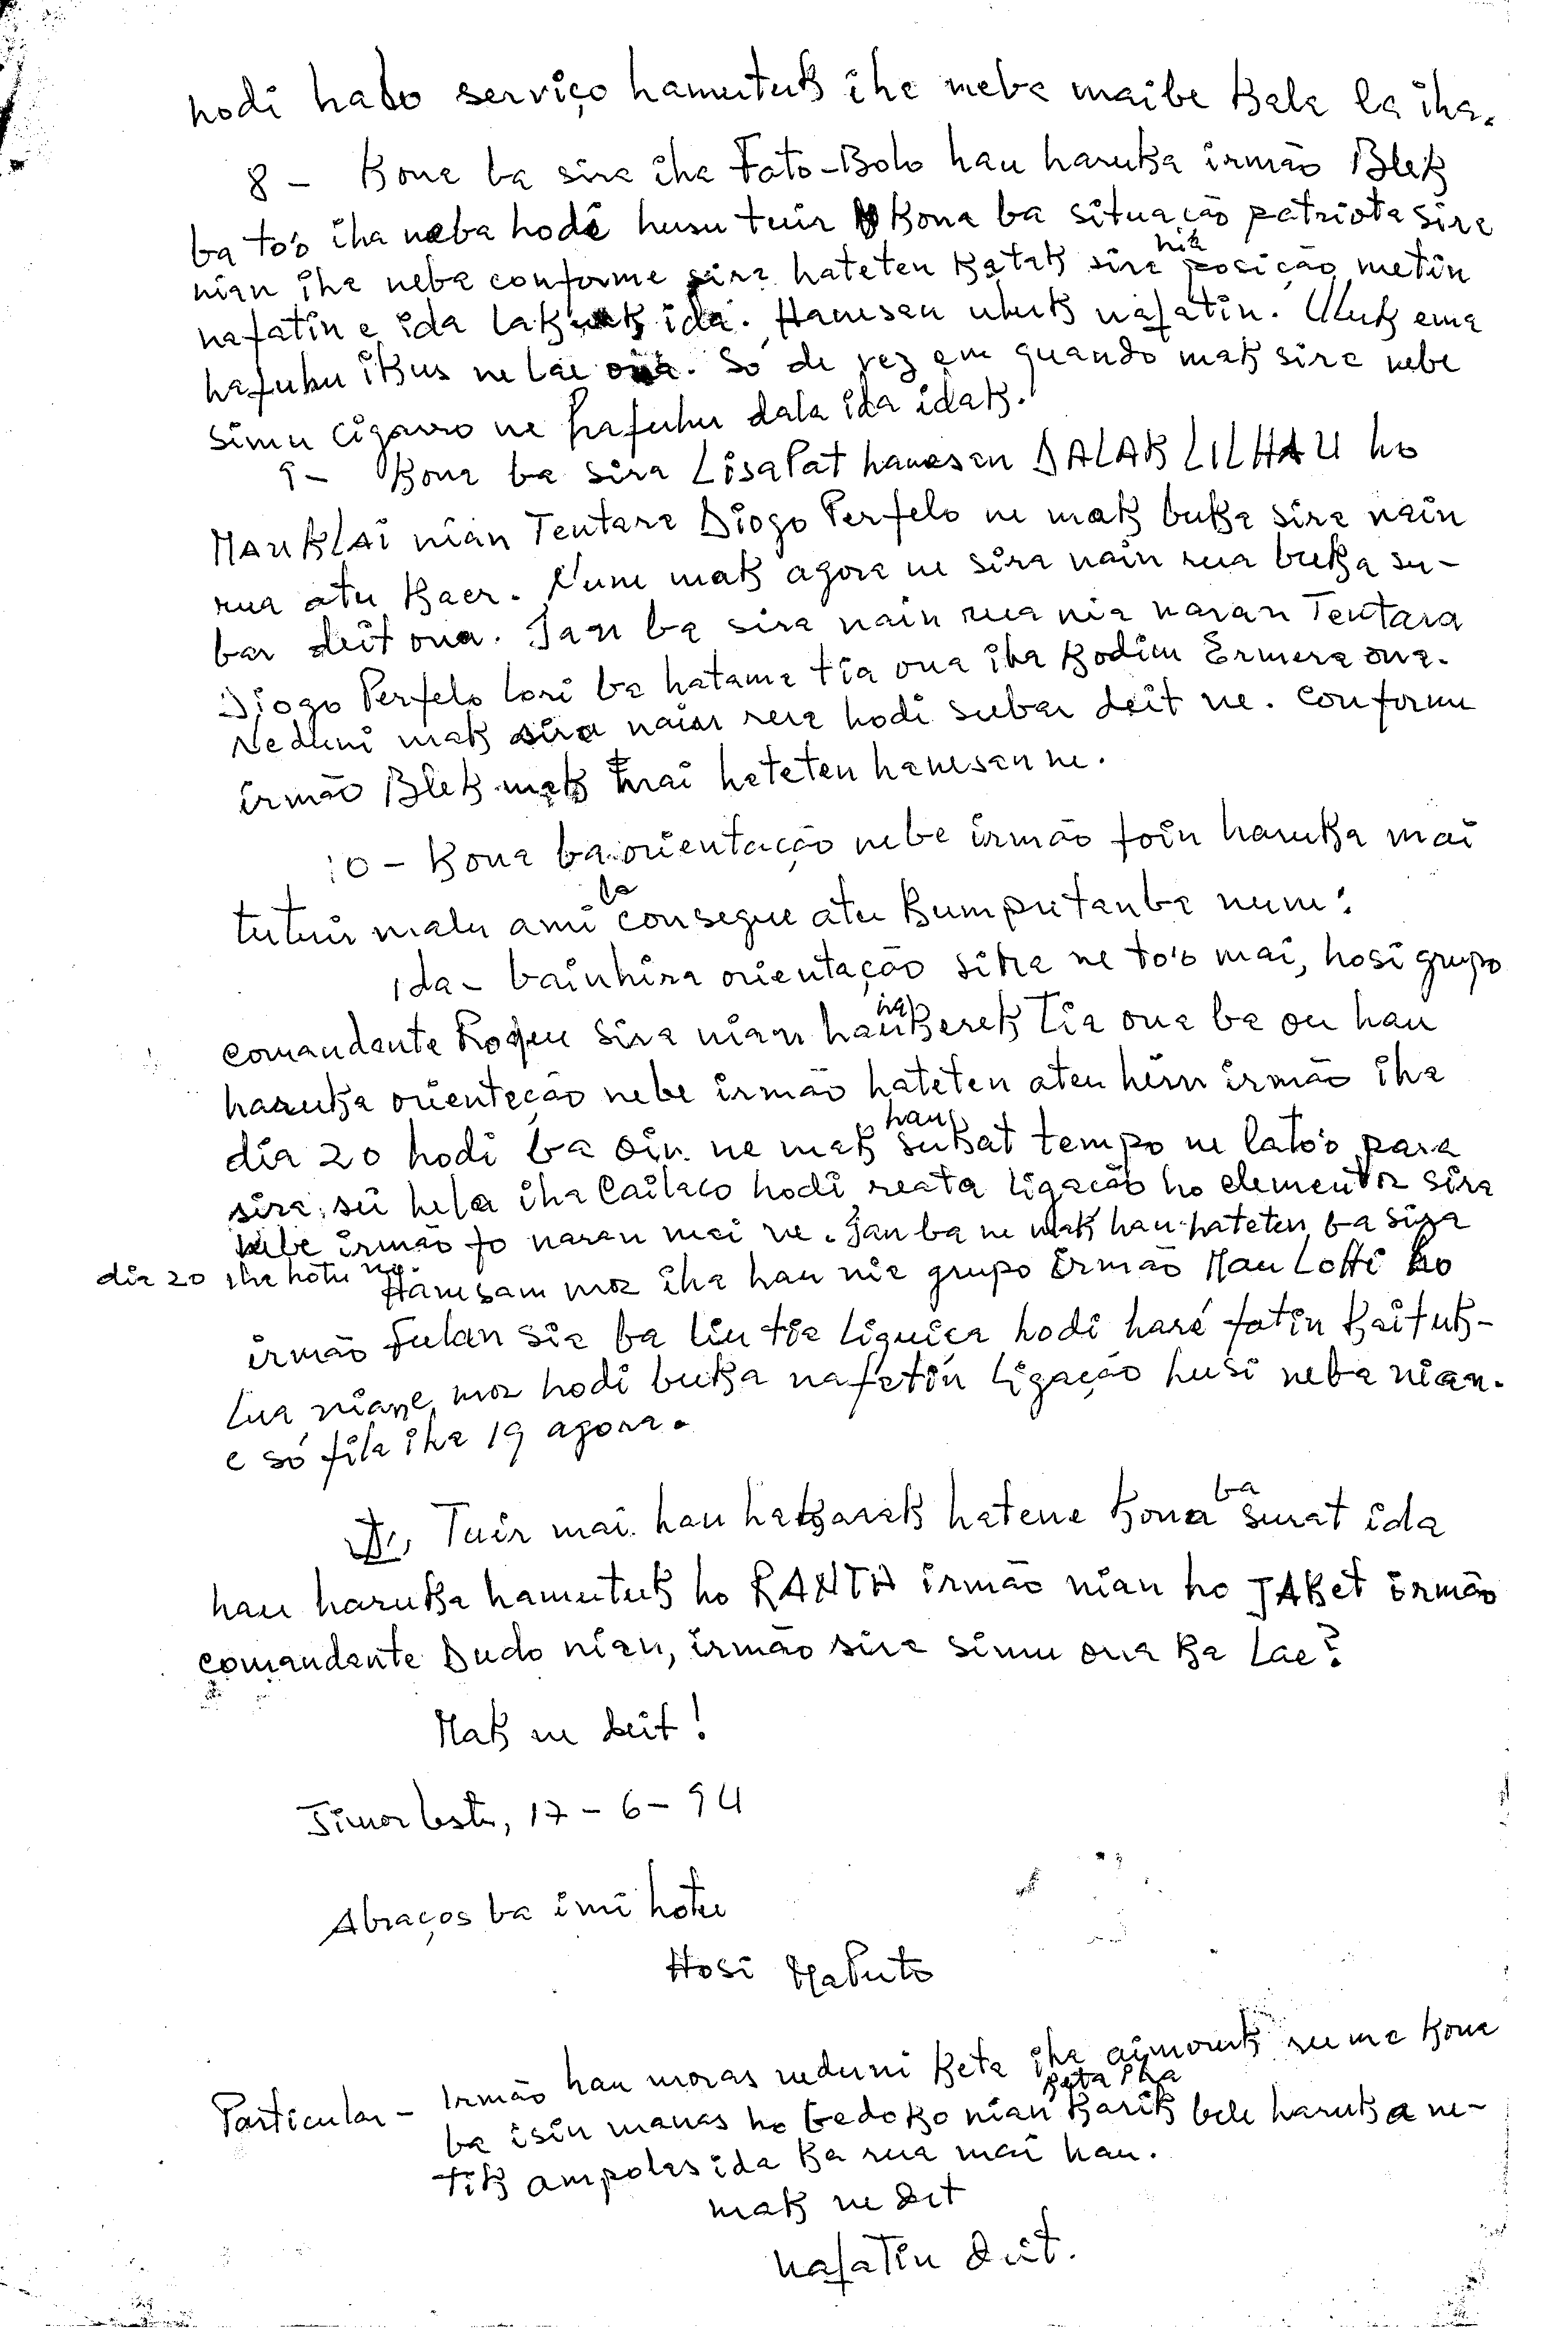 hodi halo serviço hamutuk iha neba maibe kala la iha.
8 - Kona ba sira iha Fato-Bolo hau haruka irmão Blek
ba to'o iha neba hodi husu tuir kona ba situação patriota sira
nian iha neba conforme sira hateten katak sira nia posição metin
nafatin e ida lakuak ida. Hanesan uluk nafatin. Uluk ema
hafuhu ikus ne lae ona. Só de vez em quando mak sira nebe
simu cigarro ne hafuhu dala ida idak.
9 - Kona ba sira LisaPat hanesan DALAK LILHAU ho
MAUKLAI nian Tentara Diogo Perfelo ne mak buka sira nain
rua atu kaer. Nune mak agora ne sira nain rua buka su-
bar deit ona. Tan ba sira nain rua nia naran Tentara
Diogo Perfelo lori ba hatama tia ona iha Kodim Ermera ona.
Neduni mak sira nain rua hodi subar deit ne. Conforme
irmão Blek mak mai hateten hanesan ne.
10 - Kona ba orientação nebe irmão foin haruka mai
tutuir malu ami la consegue atu kumpri tanba nune:
Ida - bainhira orientação sira ne to'o mai, hosi grupo
comandante Roque sira nian hau hakerek tia ona ba ou hau
haruka orientação nebe irmão hateten atu hein irmão iha
dia 20 hodi ba oin ne mak hau sukat tempo ne lato'o para
sira sei hela iha Cailaco hodi reata ligação ho elementos sira
nebe irmão fo naran mai ne. Tan ba ne mak hau hateten ba sira
dia 20 iha hotu ne.
Hanesam moz iha hau nia grupo irmão Mau Lotti ho
irmão Fulan sia ba liu tia Liquica hodi haré fatin Kaituk-
Lua nian e moz hodi buka nafatin ligação husi neba nian.
e só fila iha 19 agora.
Tuir mai hau hakarak hatene kona ba surat ida
hau haruka hamutuk ho RANTA irmão nian ho JAKet irmão
comandante Dudo nian, irmão sira simu ona ka lae?
Mak ne deit!
Timor Leste, 17 - 6 - 94
Abraços ba imi hotu
Hosi MaPuto
Particular - Irmão hau moras neduni keta iha aimoruk ruma kona
ba isin manas ho bedoko nian keta iha karik bele haruka ne-
tik ampolas ida ka rua mai hau.
mak ne deit
Nafatin deit.